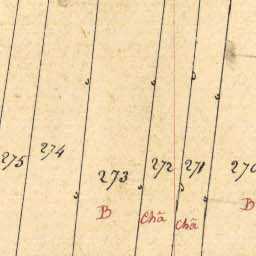 275 274 273 272 271 270
B Chã Chã B